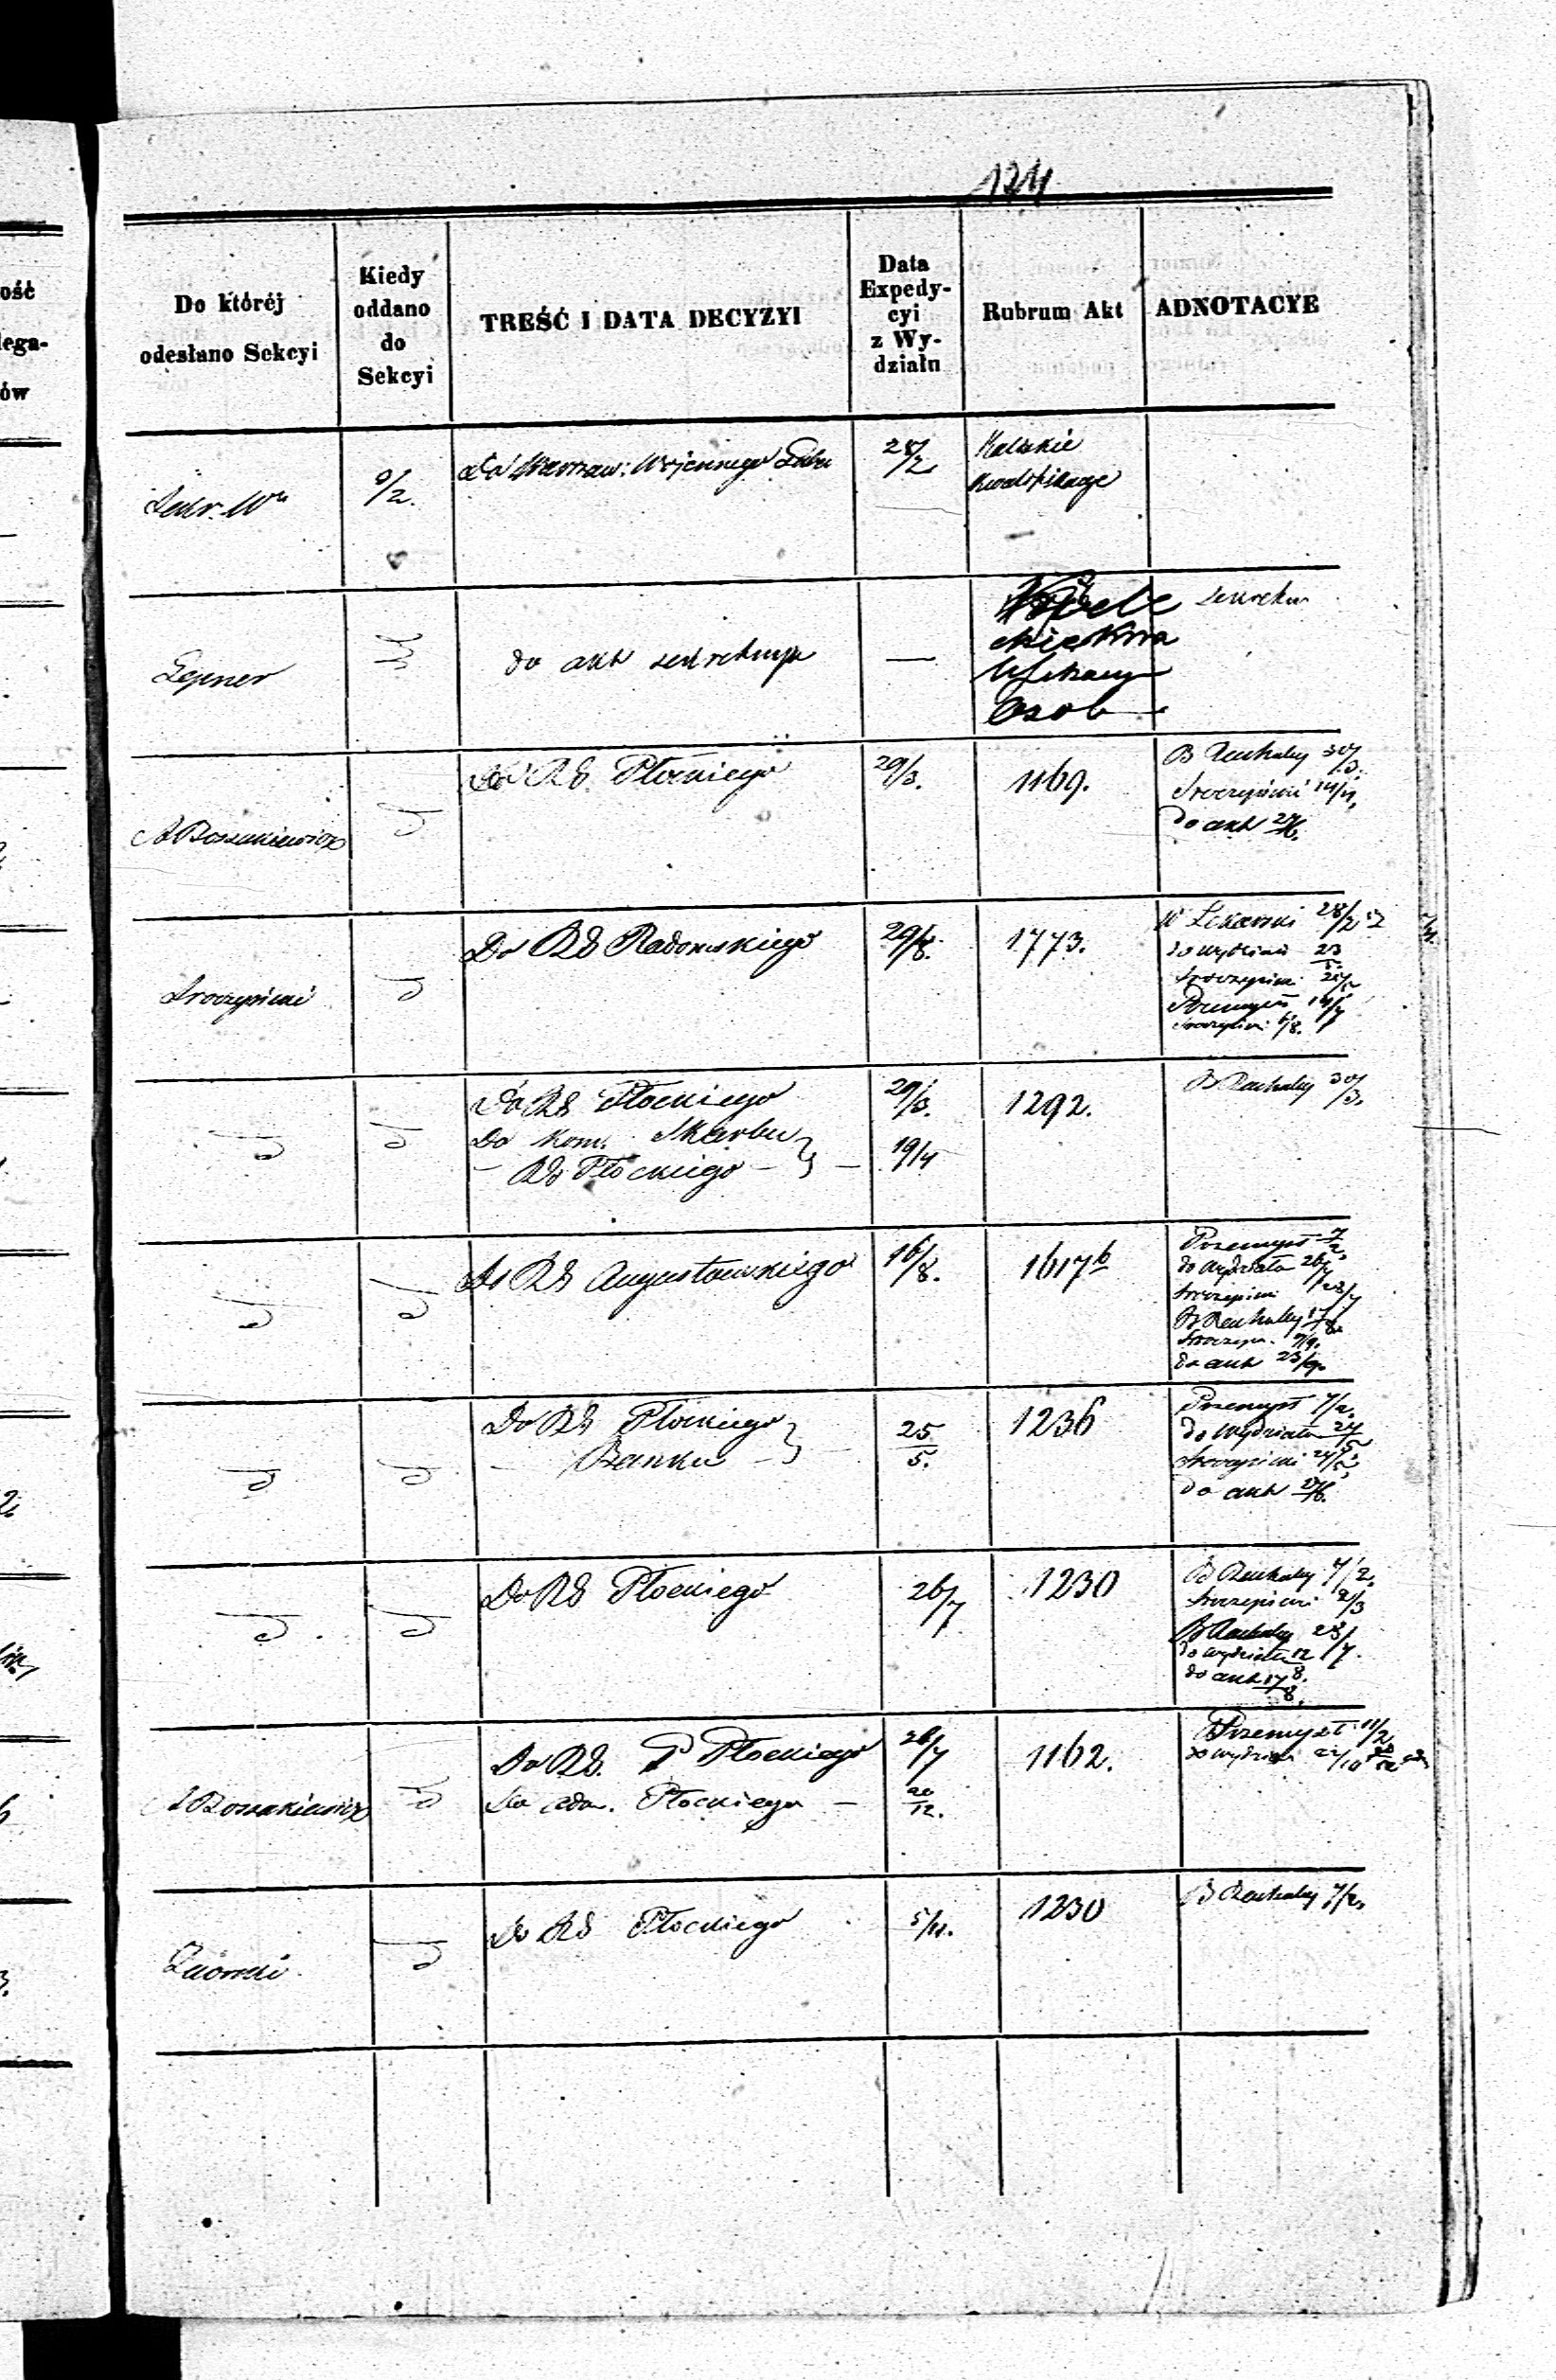 124
Do któréj
odesłano Sekcyi
Kiedy
oddano
do
Sekcyi
TREŚĆ I DATA DECYZYI
Data
Expedy-
cyi
z Wy-
działu
Rubrum Akt
ADNOTACYE
Sekr. Wu
9/2.
Do Warszaw: Wojennego Gube
28/2
Kaliskie
Kwalifikacye
Lepner
do akt sekretnych
—
Osob
A Rossakiewicz
Do RG Płockiego
29/3.
1169.
B Rachuby 30/3.
Sroczyński 14/4,
do akt
Sroczyński
Do RG Radomskiego
29/8.
1773.
W Lekarski 28/2
do wydziału 23/5.
Sroczyński
Przemysł
Sroczyński 6/8.
Do RG Płockiego
Do Kom. Skarbu
— RG Płockiego —
29/3.
19/4
1292.
B Rachuby 30/3.
Do RG Augustowskiego
16/8.
1617b
Przemysł 7/2.
do wydziału 26/7
Sroczyński 28/7
B Rachuby 17/8.
Sroczyń. 9/9.
do akt 23/9.
Do RG Płockiego
— Banku —
25/5.
1236
Przemysł 7/2.
do wydziału 24/5.
Sroczyński 24/5,
do akt
Do RG Płockiego
26/7
1230
B Rachuby 7/2.
Sroczyński 2/3
B Rachuby 23/7.
do wydziału 12/8.
do akt 17/8.
A Rossakiewicz
Do RG. P Płockiego
Do Płockiego —
26/7
20/12.
1162.
Przemysł 11/2
do wydział 22/10
Do RG Płockiego
5/11.
1230
B Rachuby 7/2.